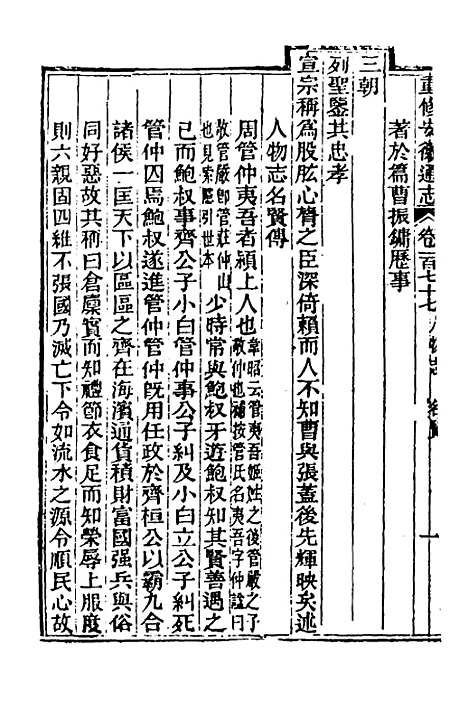 重修安徽通志 卷一百七十七 人物志 名賢 一
著於篇曹振鏞歷事
三朝
列聖鑒其忠孝
宣宗稱爲股肱心膂之臣深倚賴而人不知曹與張蓋後先輝映矣述
人物志名賢傳
周管仲夷吾者潁上人也韋昭云管夷吾姬姓之後管嚴之子敬仲也補按管氏名夷吾字仲諡曰敬管嚴卽管莊仲山也見索隱引世本少時常與鮑叔牙遊鮑叔知其賢善遇之
已而鮑叔事齊公子小白管仲事公子糾及小白立公子糾死
管仲囚焉鮑叔遂進管仲管仲旣用任政於齊桓公以霸九合
諸侯一匡天下以區區之齊在海濱通貨積財富國强兵與俗
同好惡故其稱曰倉廩實而知禮節衣食足而知榮辱上服度
則六親固四維不張國乃滅亡下令如流水之源令順民心故